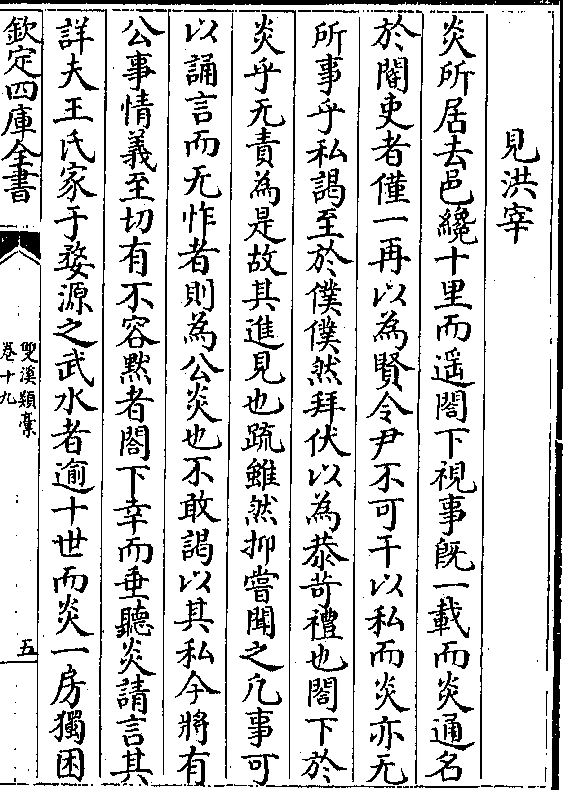 見洪宰
炎所居去邑纔十里而遥閤下視事既一載而炎通名
於閽吏者僅一再以為賢令尹不可干以私而炎亦无
所事乎私謁至於僕僕然拜伏以為恭苛禮也閤下於
炎乎无責為是故其進見也疏雖然抑嘗聞之凡事可
以誦言而无怍者則為公炎也不敢謁以其私今將有
公事情義至切有不容黙者閤下幸而垂聽炎請言其
詳夫王氏家于婺源之武水者逾十世而炎一房獨困
欽定四庫全書
雙溪類藁
卷十九
五